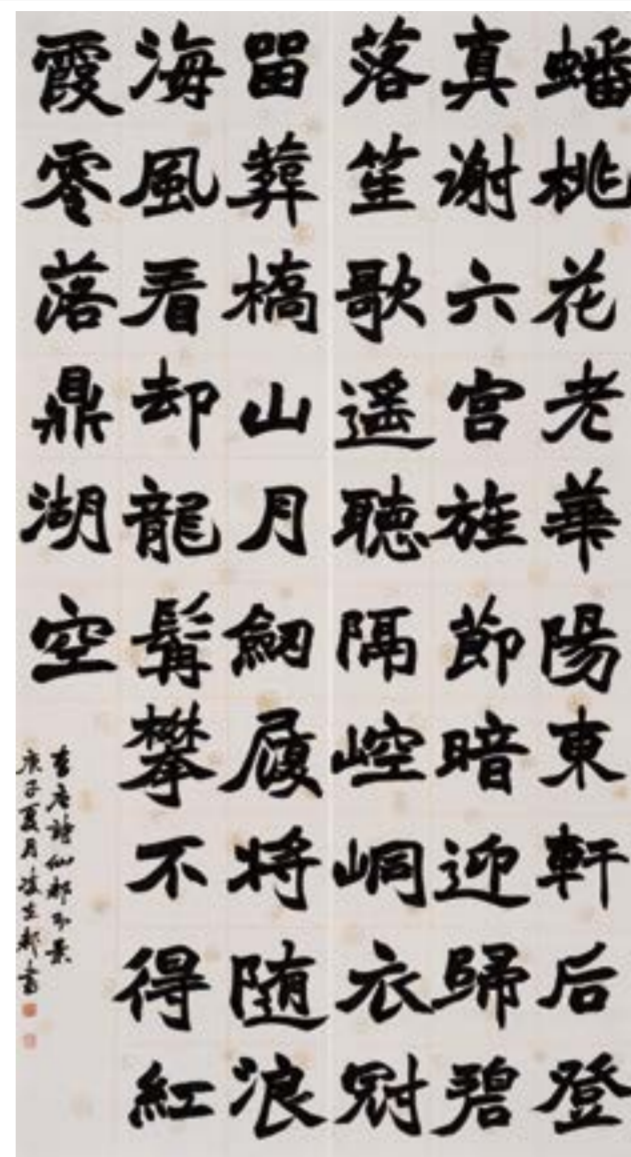 蟠桃花老華陽東軒后登
真謝六宮旌節暗迎歸碧
落笙歌遥聴隔崆峒衣冠
留葬槗山月劒履将随浪
海風看却龍髯攀不得紅
霞零落鼎湖空
書唐詩仙都即景
庚子夏月書